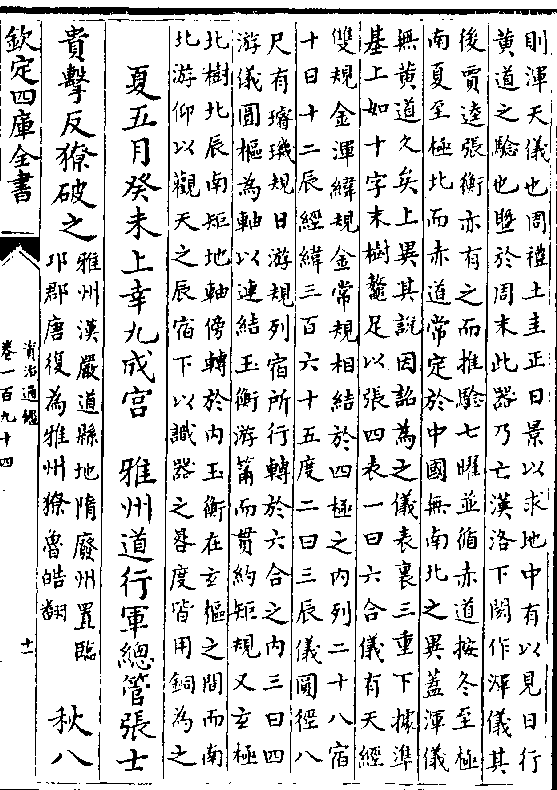 則渾天儀也周禮土圭正日景以求地中有以見日行
黄道之驗也暨於周末此器乃亡漢洛下閎作渾儀其
後賈逵張衡亦有之而推驗七曜並循赤道按冬至極
南夏至極北而赤道常定於中國無南北之異蓋渾儀
無黄道久矣上異其說因詔為之儀表裏三重下據準
基上如十字末樹鼇足以張四表一曰六合儀有天經
雙規金渾緯規金常規相結於四極之内列二十八宿
十日十二辰經緯三百六十五度二曰三辰儀圓徑八
尺有璿璣規日游規列宿所行轉於六合之内三曰四
游儀圓樞為軸以連結玉衡游筩而貫約矩規又玄極
北樹北辰南矩地軸傍轉於内玉衡在玄樞之間而南
北游仰以觀天之辰宿下以識器之晷度皆用銅為之
夏五月癸未上幸九成宫 雅州道行軍總管張士
貴擊反獠破之
雅州漢嚴道縣地隋廢州置臨
邛郡唐復為雅州獠魯皓翻
秋八
欽定四庫全書
資治通鑑
卷一百九十四
十一